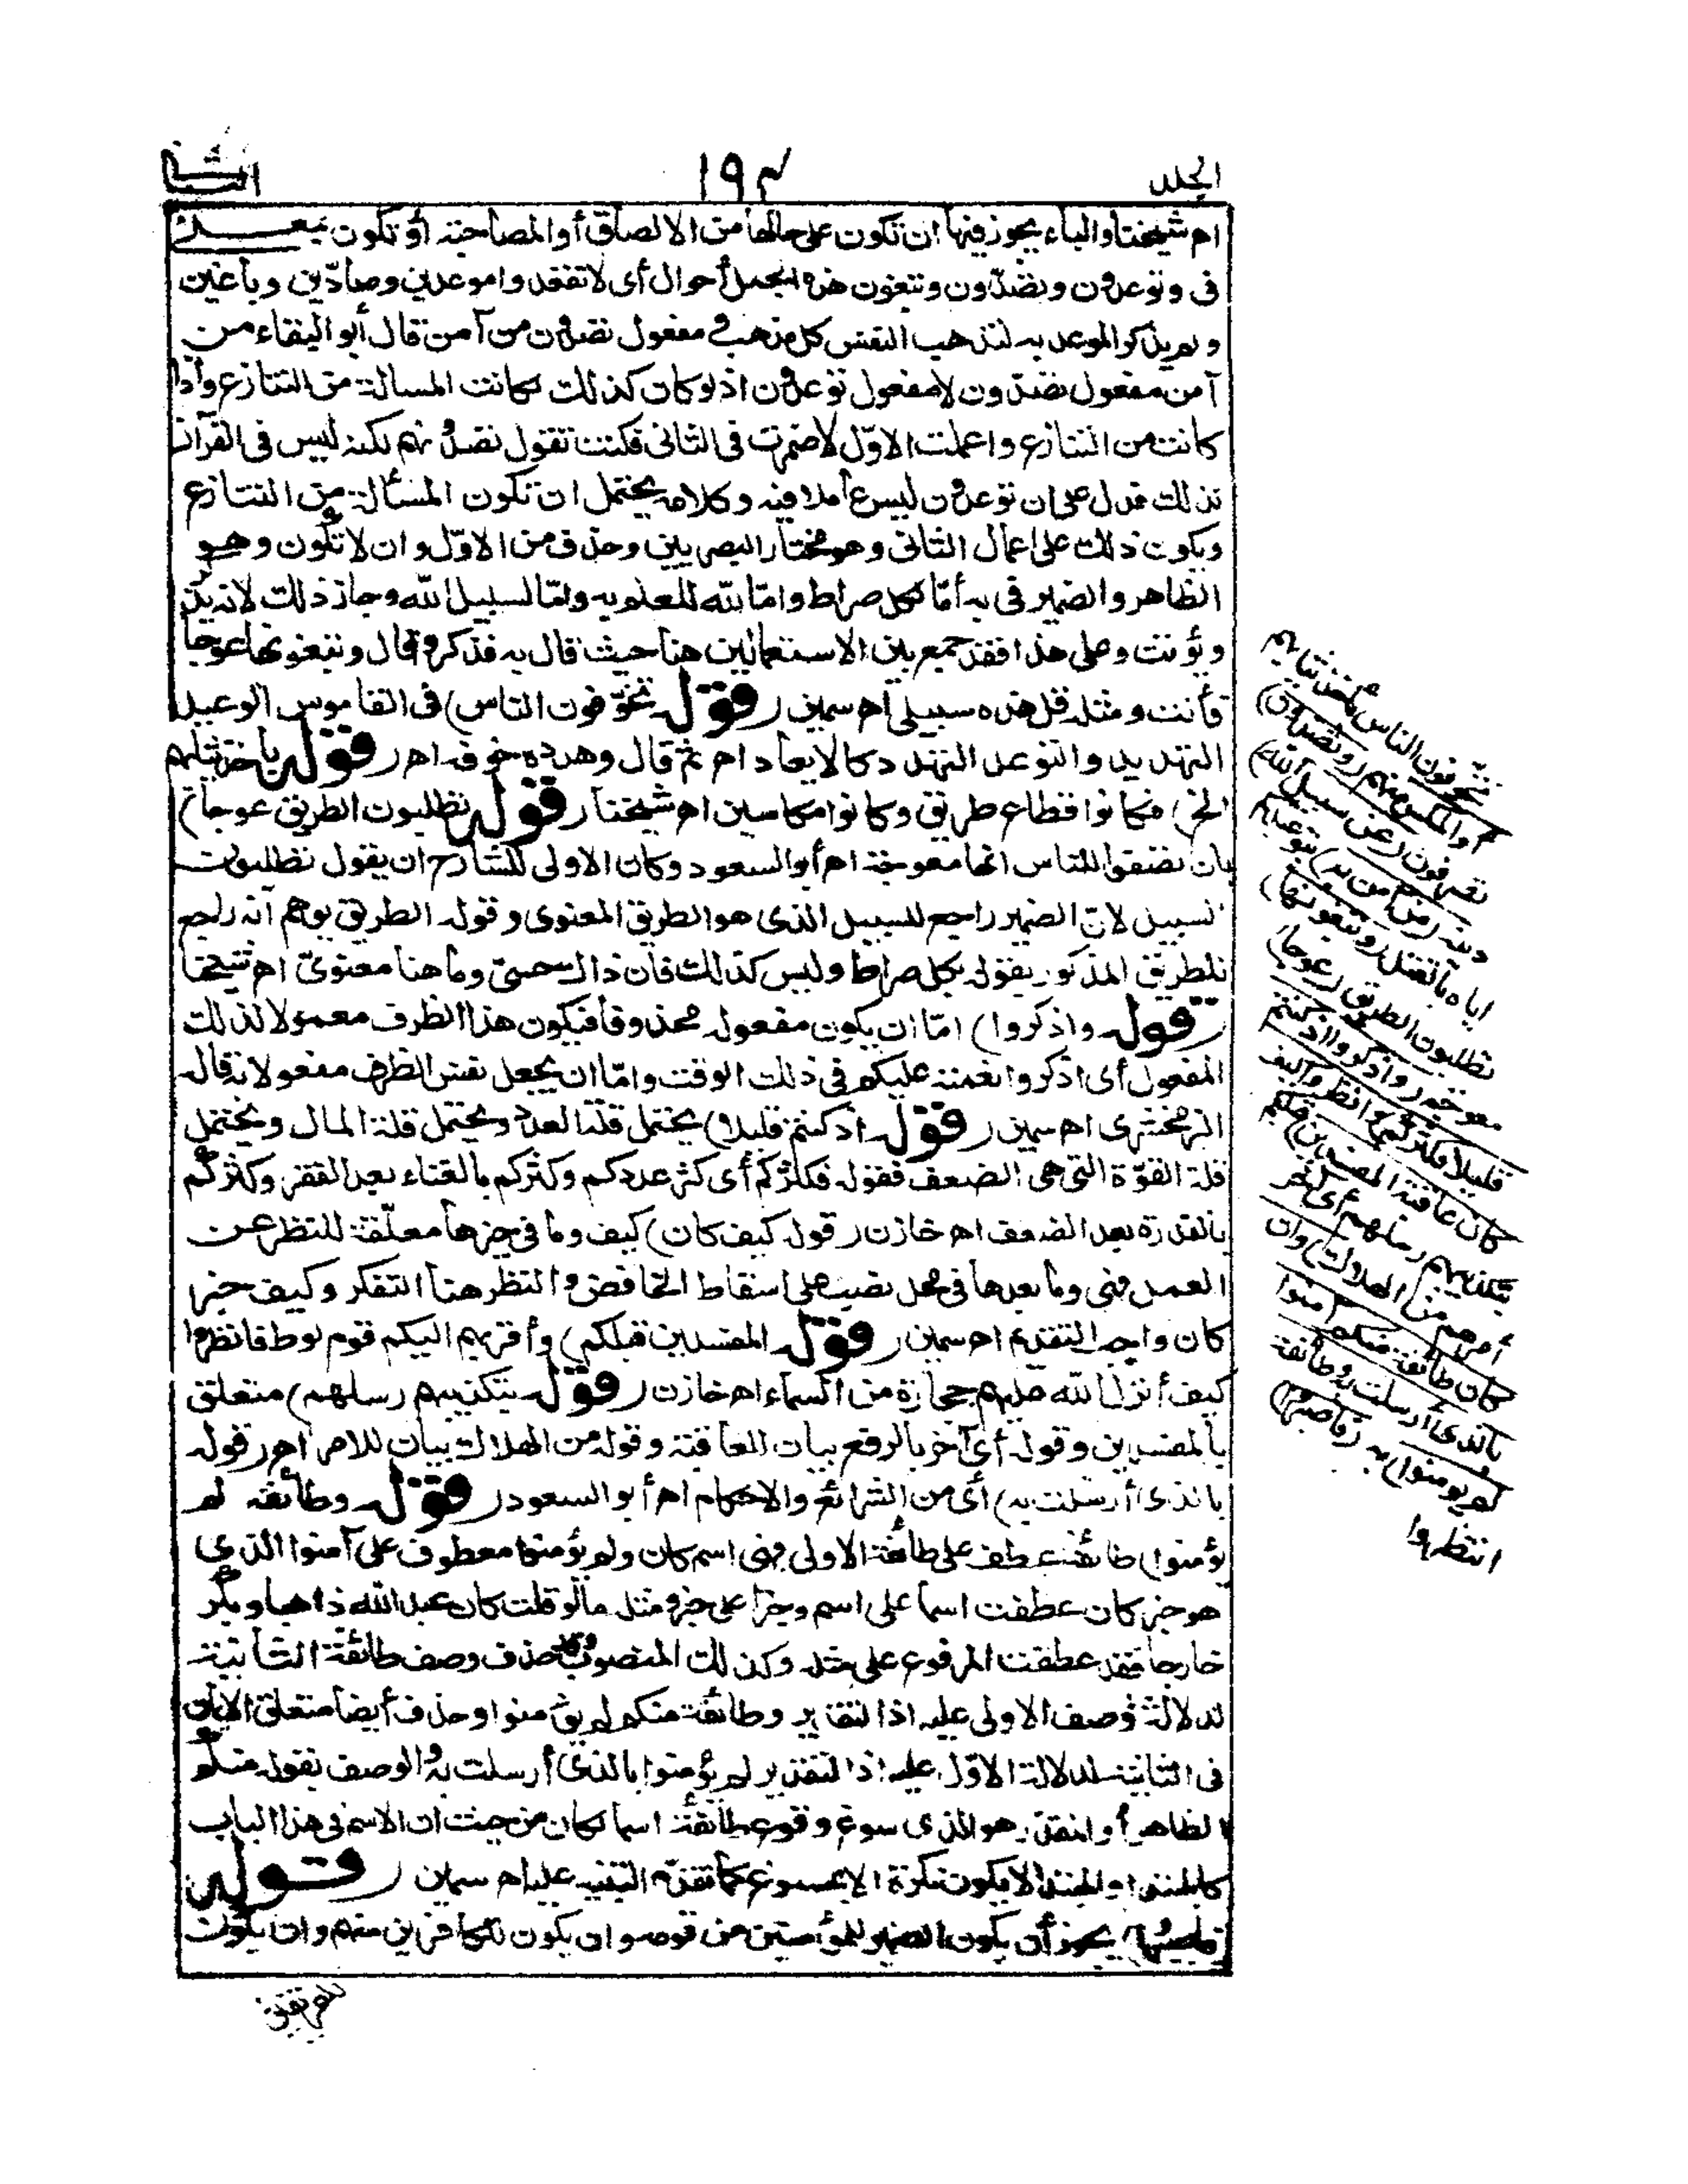 الجلد ١٩٤ الثانى
اه شيخنا والباء يجوز فيها ان تكون على حالها من الالصاق أو المصاحبة أو تكون بمعنى
فى وتوعدون وتصدّون وتبغون هذه الجمل أحوال أى لا تقعدوا موعدين وصادّين وباغين
ولم يذكر الموعد به لتذهب النفس كل مذهب ومفعول تصدون من آمن قال أبو البقاء من
آمن مفعول تصدّون لا مفعول توعدون اذ لو كان كذلك لكانت المسالة من التنازع واذا
كانت من التنازع واعملت الاوّل لاضمرت فى الثانى فكنت تقول تصدونهم لكنه ليس فى القرآن
كذلك فدل على ان توعدون ليس عاملا فيه وكلامه يحتمل ان تكون المسألة من التنازع
ويكون ذلك على اعمال الثانى وهو مختار البصريين وحذف من الاوّل وان لا تكون وهو
الظاهر والضمير فى به أمّا لكل صراط وامّا لله للعلم به وامّا لسبيل الله وجاز ذلك لانه يذكر
ويؤنث وعلى هذا فقد جمع بين الاستعمالين هنا حيث قال به فذكر وقال وتبغونها عوجا
فأنث ومثله قل هذه سبيلى اه سمين (قوله تخوّفون الناس) فى القاموس الوعيد
التهديد والتوعد التهدد كالايعاد اه ثم قال وهدده خوفه اه (قوله بأخذ ثيابهم
الخ) فكانوا قطاع طريق وكانوا مكاسين اه شيخنا (قوله تطلبون الطريق عوجا)
بان تصفوا للناس انها معوجة اه أبو السعود وكان الاولى للشارح ان يقول تطلبون
السبيل لانّ الضمير راجع للسبيل الذى هو الطريق المعنوى وقوله الطريق يوهم أنه راجع
للطريق المذكور بقوله بكل صراط وليس كذلك فان ذاك حسىّ وما هنا معنوىّ اه شيخنا
(قوله واذكروا) امّا ان يكون مفعوله محذوفا فيكون هذا الظرف معمولا لذلك
المفعول أى اذكروا نعمته عليكم فى ذلك الوقت وامّا ان يجعل نفس الظرف مفعولا به قاله
الزمخشرى اه سمين (قوله اذ كنتم قليلا) يحتمل قلة العدد ويحتمل قلة المال ويحتمل
قلة القوّة التى هى الضعف فقوله فكثركم أى كثر عددكم وكثركم بالغناء بعد الفقر وكثركم
بالقدرة بعد الضعف اه خازن (قوله كيف كان) كيف وما فى حيزها معلّقة للنظر عن
العمل فهى وما بعدها فى محل نصب على اسقاط الخافض والنظر هنا التفكر وكيف خبر
كان واجب التقديم اه سمين (قوله المفسدين قبلكم) وأقربهم اليكم قوم لوط فانظروا
كيف أنزل الله عليهم حجارة من السماء اه خازن (قوله بتكذيبهم رسلهم) متعلق
بالمفسدين وقوله أى آخر بالرفع بيان للعاقبة وقوله من الهلاك بيان للامر اه (قوله
بالذى أرسلت به) أى من الشرائع والاحكام اه أبو السعود (قوله وطائفة لم
يؤمنوا) طائفة عطف على طائفة الاولى فهى اسم كان ولم يؤمنوا معطوف على آمنوا الذى
هو خبر كان عطفت اسما على اسم وخبرا على خبر ومثله ما لو قلت كان عبد الله ذاهبا وبكر
خارجا فقد عطفت المرفوع على مثله وكذلك المنصوب وقد حذف وصف طائفة الثانية
لدلالة وصف الاولى عليه اذ التقدير وطائفة منكم لم يؤمنوا وحذف أيضا متعلق الايمان
فى الثانية لدلالة الاوّل عليه اذ التقدير لم يؤمنوا بالذى أرسلت به والوصف بقوله منكم
الظاهر أو المقدر هو الذى سوغ وقوع طائفة اسما لكان من حيث ان الاسم فى هذا الباب
كالمبتدا والمبتدا لا يكون نكرة الا بمسوغ كما تقدّم التنبيه عليه اه سمين (قوله
فاصبروا) يجوز أن يكون الضمير للمؤمنين من قومه وان يكون للكافرين منهم وان يكون
للفريقين
تخوّفون الناس بأخذ ثيابهم
أو المكس منهم (وتصدون)
تصرفون (عن سبيل الله)
دينه (من آمن به) بتوعدكم
اياه بالقتل (وتبغونها)
تطلبون الطريق (عوجا)
معوجة (واذكروا اذ كنتم
قليلا فكثركم وانظروا كيف
كان عاقبة المفسدين) قبلكم
بتكذيبهم رسلهم أى آخر
أمرهم من الهلاك (وان
كان طائفة منكم آمنوا
بالذى أرسلت به وطائفة
لم يؤمنوا) به (فاصبروا)
انتظروا